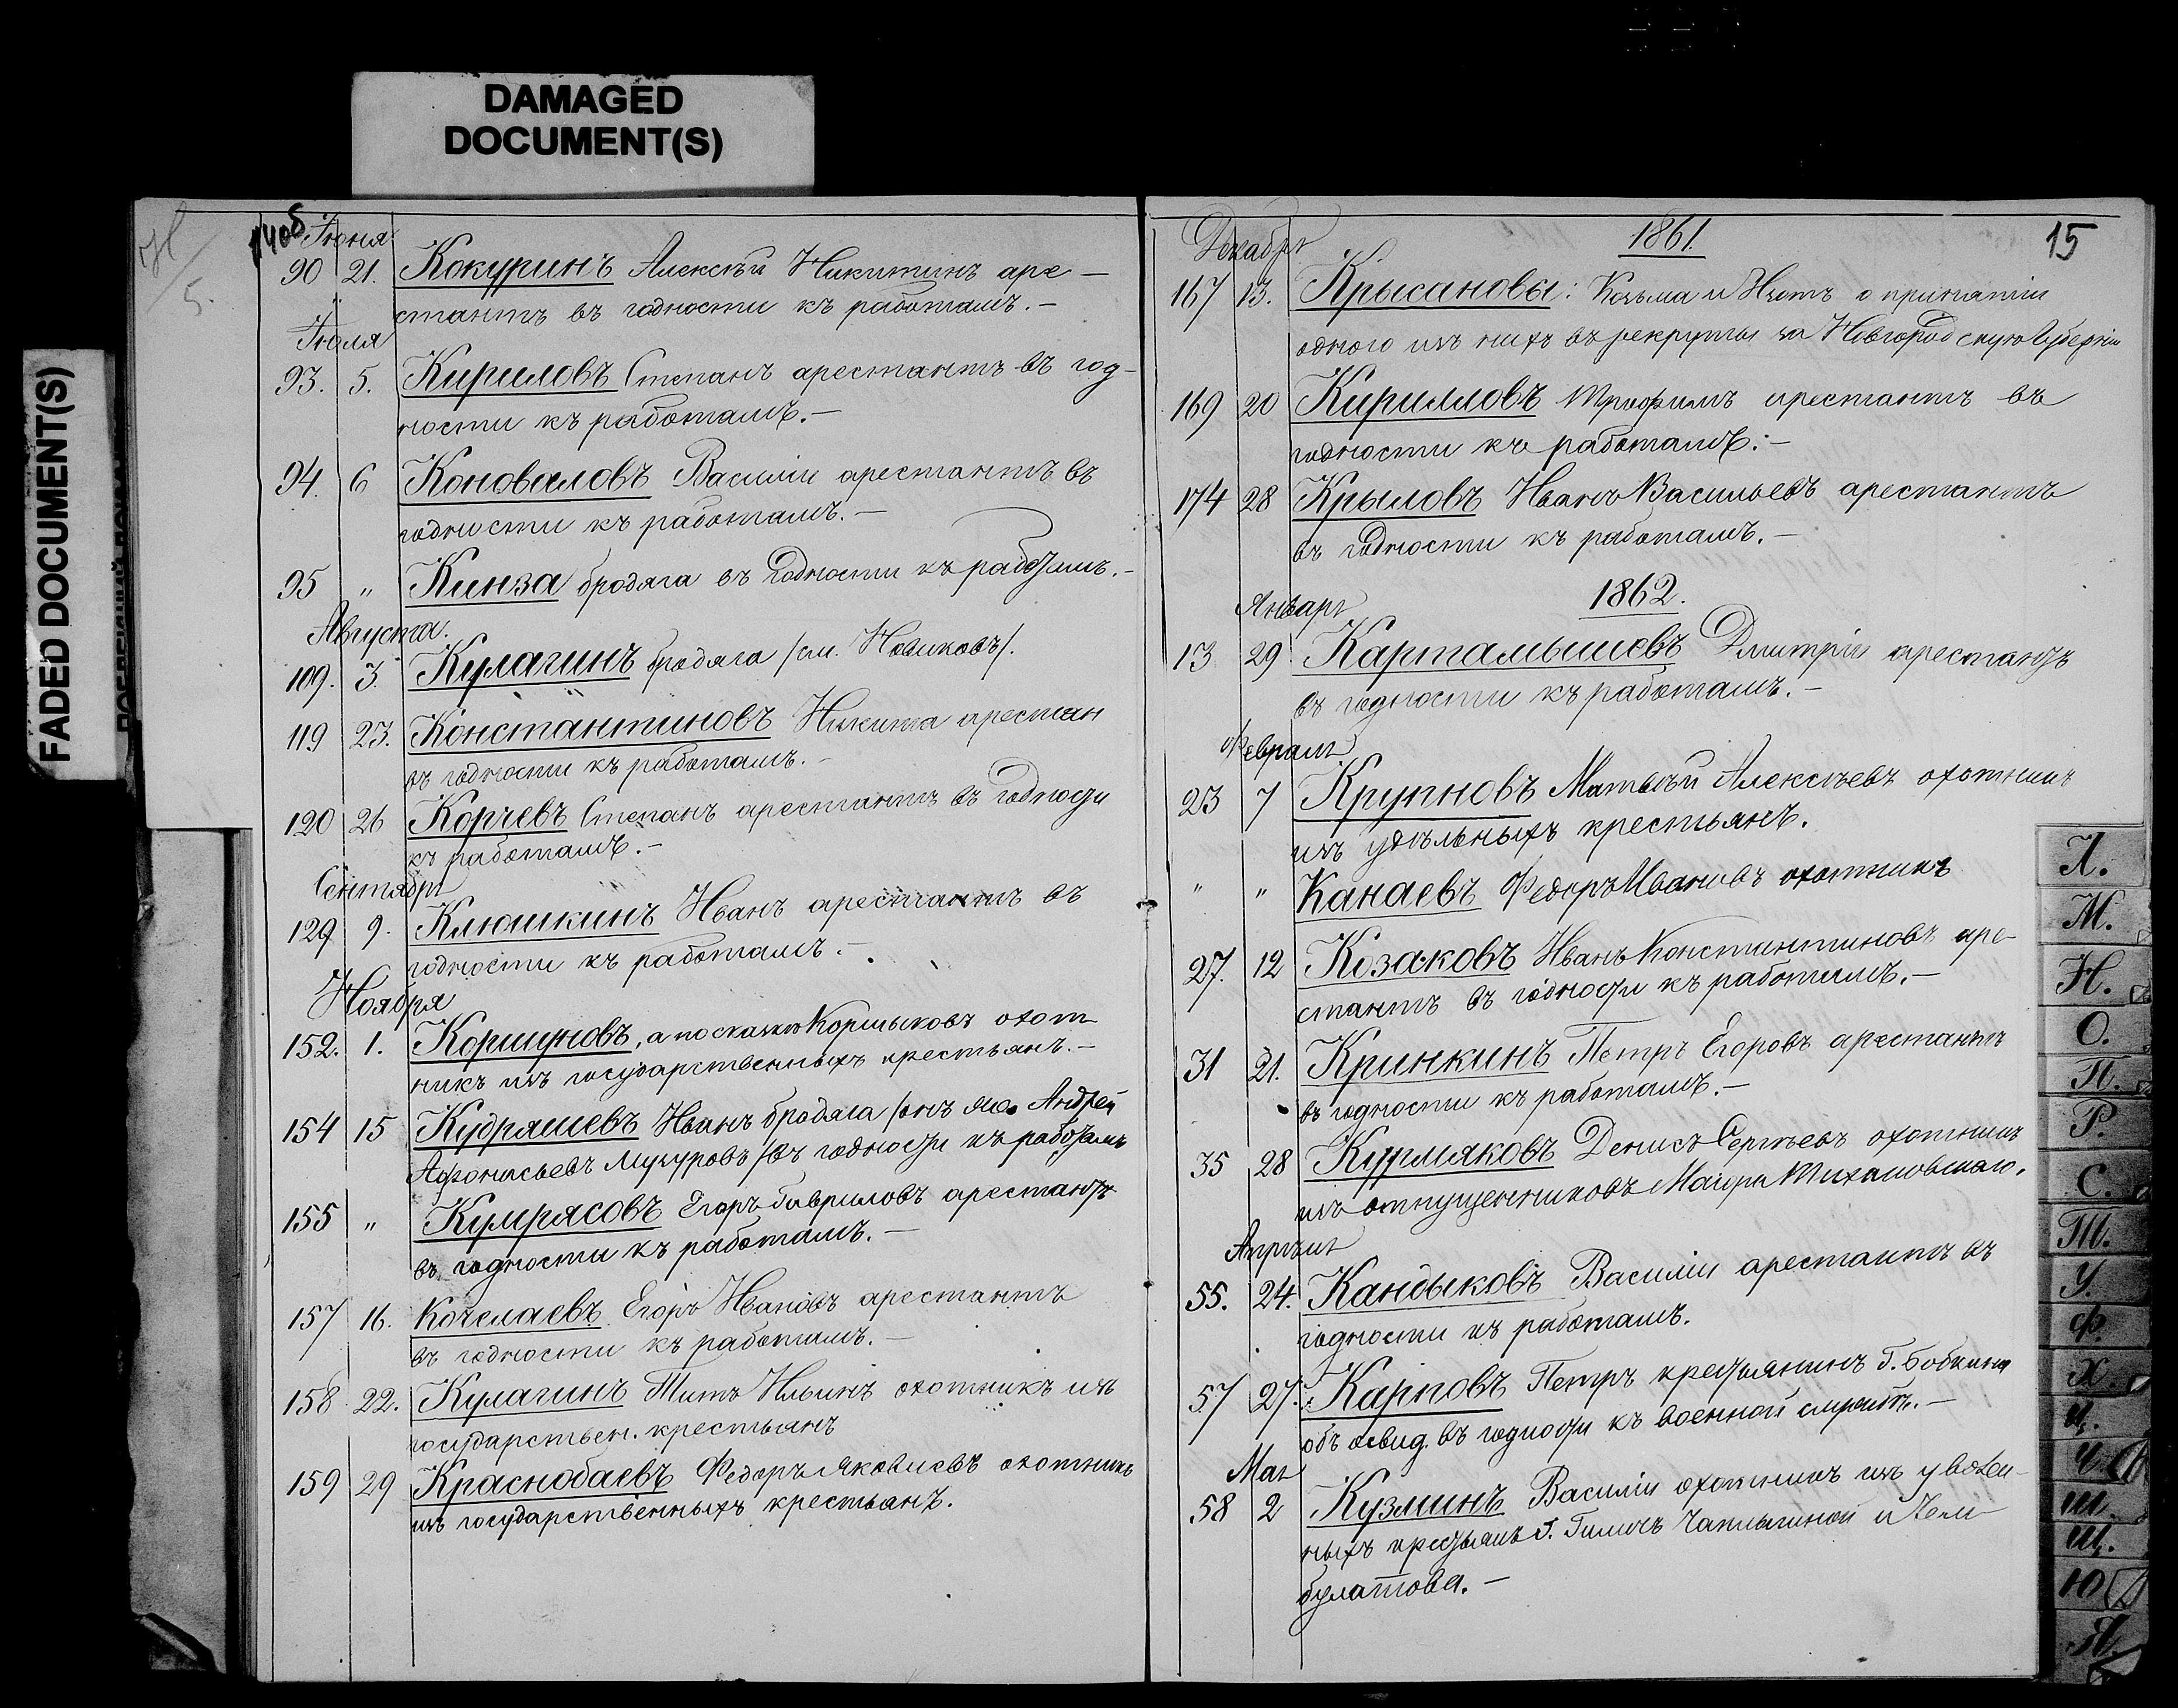 DAMAGED
DOCUMENT(S)
FADED DOCUMENT(S)
Іюня
90 21. Кокуринъ Алексѣй Никитинъ аре-
стантъ въ годности къ работамъ.-
Іюля
93. 5. Кириловъ Степанъ арестантъ въ год-
ности къ работамъ.-
94. 6 Коноваловъ Василій арестантъ въ
годности къ работамъ.-
95 " Кинза бродяга въ годности къ работамъ.-
Августа.
109. 3. Кулагинъ бродяга /см. Новиковъ/.
119 23. Константиновъ Никита арестан
въ годности къ работамъ.-
120 26 Корчевъ Степанъ арестантъ въ годности
къ работамъ.-
Сентября
129 9. Клюшкинъ Иванъ арестантъ въ
годности къ работамъ.-
Ноября
152. 1. Коршуновъ, а по сказкѣ Коршыковъ охот
никъ изъ государственныхъ крестьянъ.-
154 15 Кудряшевъ Иванъ бродяга /онъ же Андрей
Афонасьевъ /въ годности къ работамъ
155 " Кумрясовъ Егоръ Гавриловъ арестантъ
въ годности къ работамъ.-
157 16. Кочелаевъ Егоръ Ивановъ арестантъ
въ годности къ работамъ.-
158 22. Кулагинъ Титъ Ильинъ охотникъ изъ
государствен. крестьянъ
159 29 Краснобаевъ Федоръ Яковлевъ охотникъ
изъ государственныхъ крестьянъ.
15
1861.
Декабря
167 13. Крысановы: Козьма и Изотъ о принятіи
одного изъ нихъ въ рекруты за Новгородскую Губернію
169 20 Кирилловъ Трофимъ арестантъ въ
годности къ работамъ:-
174 28 Крыловъ Иванъ Васильевъ арестантъ
въ годности къ работамъ.-
1862.
Января
13 29. Картамышевъ Дмитрій арестантъ
въ годности къ работамъ.-
Февраля
23 7 Крупновъ Матвѣй Алексѣевъ охотникъ
изъ удѣльныхъ крестьянъ.
" " Канаевъ Федоръ Ивановъ охотникъ
27. 12 Козаковъ Иванъ Константиновъ аре-
стантъ въ годности къ работамъ.-
31 21. Кринкинъ Петръ Егоровъ арестантъ
въ годности къ работамъ.-
35 28 Курмяковъ Денисъ Сергѣевъ охотникъ
изъ отпущенниковъ Маіора
Апрѣля
55. 24. Кандыковъ Василій арестантъ въ
годности къ работамъ.
57 27. Карповъ Петръ крестьянинъ Г. Бобкина
объ освид. въ годности къ военной службѣ.-
Мая
58 2 Кузминъ Василій охотникъ изъ уволен-
ныхъ крестьянъ Г. Чаплыгиной и Чели
булатова.-
Л.
М.
Н.
О.
П.
Р.
С.
Т.
У.
Ф.
Х.
Ц.
Ч.
Ш.
Щ.
Ю
Я